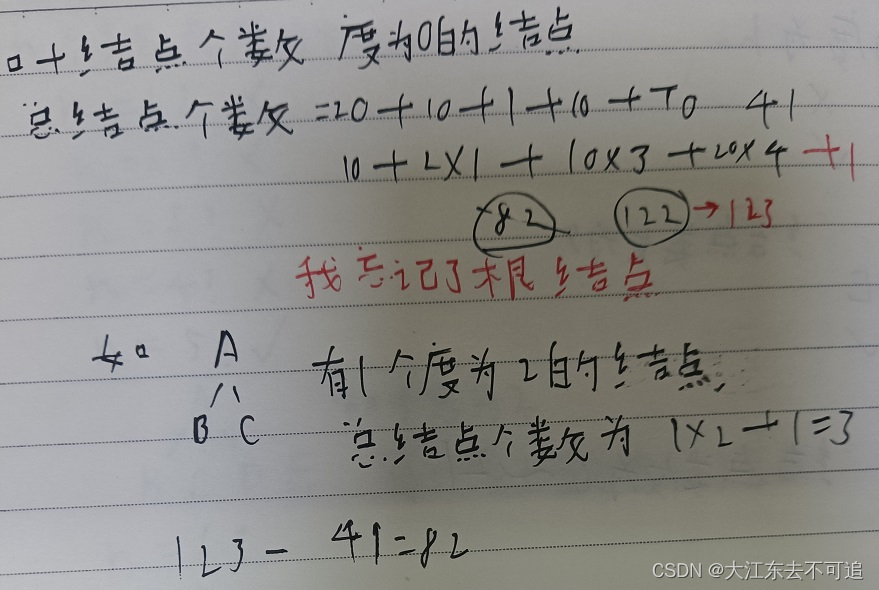 叶结点个数 度为0的结点
总结点个数=20+10+1+10+T0 41
10+2×1+10×3+20×4+1
82 122→123
我忘记了根结点
如 A 有1个度为2的结点
B C 总结点个数为 1×2+1=3
123-41=82
CSDN @大江东去不可追